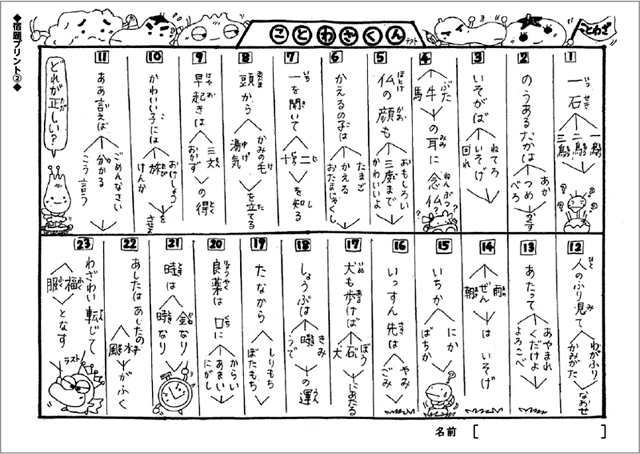 ◆宿題プリント②◆
ことわざくん
テスト
ことわざ
1
一石
いっせき
一鳥
二鳥
三鳥
2
のうあるたかは
あか
つめ
べろ
をかくす
3
いそがば
ねてろ
いそげ
回れ
4
ぶた
牛
馬
の耳に念仏
みみ
ねんぶつ
5
仏の顔も
ほとけ
かお
おもしろい
三度まで
かわいいよ
6
かえるの子は
たまご
かえる
おたまじゃくし
7
一を聞いて
いち
二
十
を知る
し
8
頭から
あたま
かみの毛
湯気
ゆげ
を立てる
9
早起きは
はやお
三文
おかず
の得
10
かわいい子には
おけしょう
旅
けんか
をさせよ
11
ああ言えば
ごめんなさい
分かる
こう言う
どれが正しい?
ただ
12
人のふり見て
ひと
み
わがふり
かみがた
なおせ
13
あたって
あやまれ
くだけよ
よろこべ
14
雨
ぜん
朝
はいそげ
15
いちか
にか
ばちか
16
いっすん先は
さき
やみ
ごみ
17
犬も歩けば
いぬ
ある
ぼう
石
大
にあたる
18
しょうぶは
きみ
時
うで
の運
19
たなから
しりもち
ぼたもち
20
良薬は口に
りょうやく
くち
からい
あまい
にがし
21
時は
とき
金なり
かね
時なり
とき
22
あしたはあしたの
水
風
がふく
23
わざわい転じて
てん
福
服
となす
ラスト
名前[　　　]